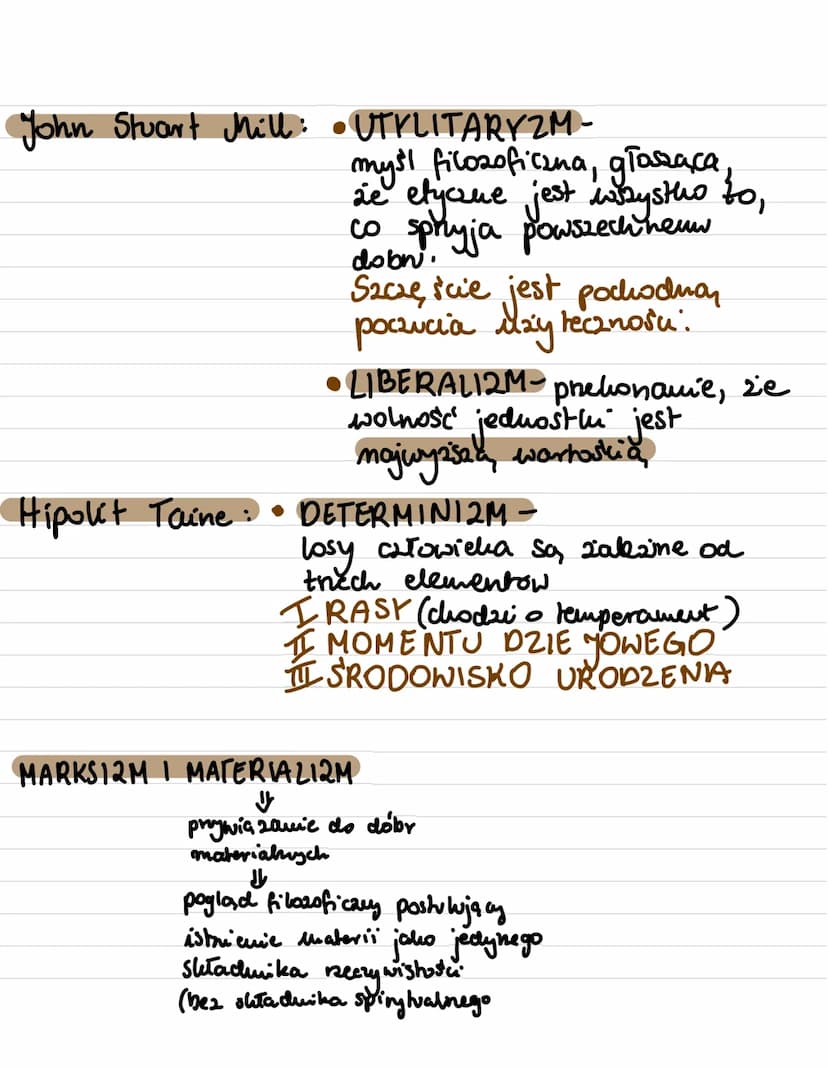 John Stuart Mill: • UTYLITARYZM -
myśl filozoficzna, głosząca,
że etyczne jest wszystko to,
co sprzyja powszechnemu
dobru.
Szczęście jest pochodną
poczucia użyteczności.
• LIBERALIZM - przekonanie, że
wolność jednostki jest
najwyższą wartością
Hipolit Taine: • DETERMINIZM -
losy człowieka są zależne od
trzech elementów
I RASY (chodzi o temperament)
II MOMENTU DZIEJOWEGO
III ŚRODOWISKO URODZENIA
MARKSIZM I MATERIALIZM
⇓
przywiązanie do dóbr
materialnych
⇓
pogląd filozoficzny postulujący
istnienie materii jako jedynego
składnika rzeczywistości
(bez składnika spirytualnego